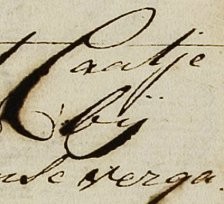 Caatje
bij
verga